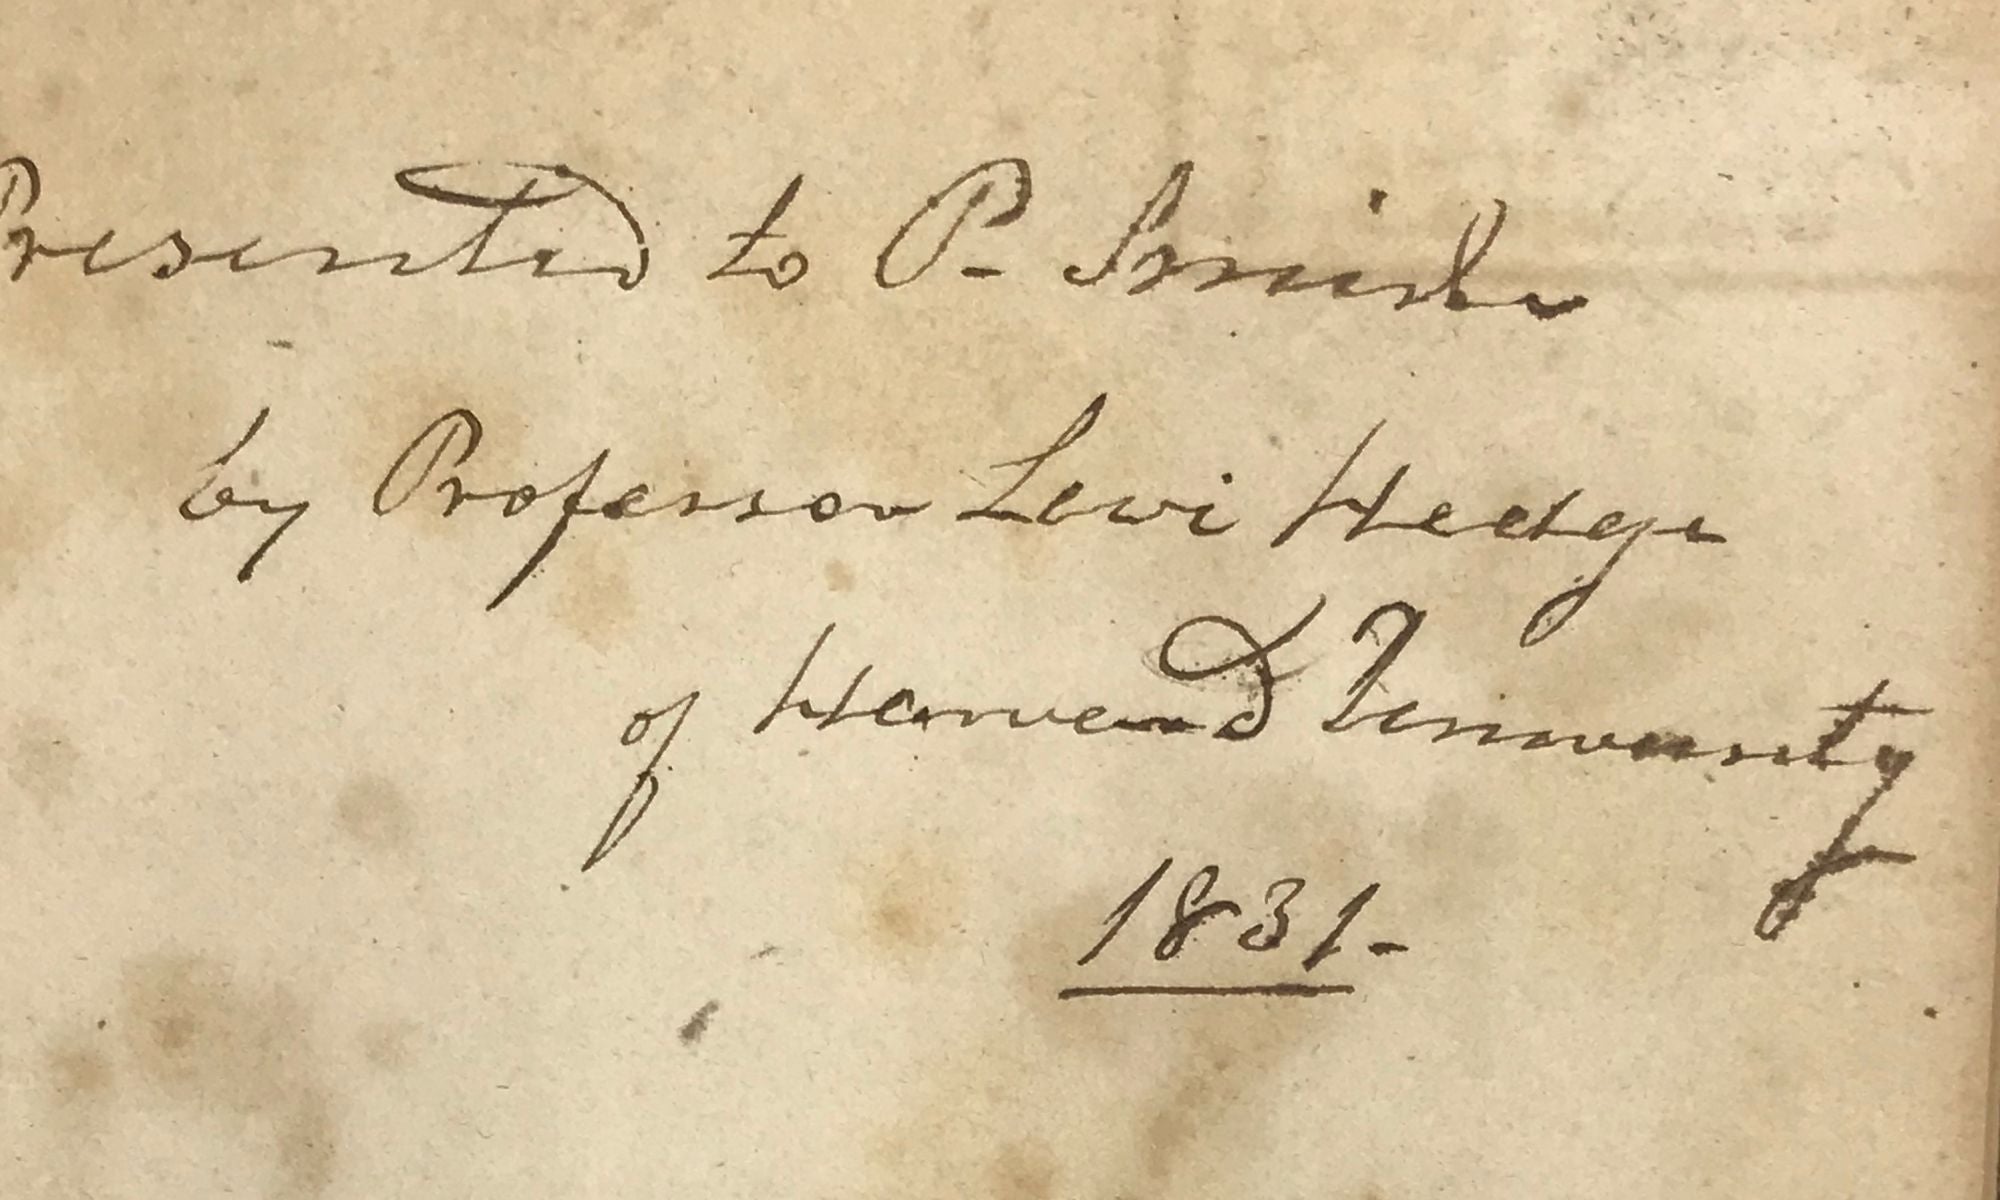 Presented to P. Smith
by Professor Levi Hedge
of Harvard University
1831-